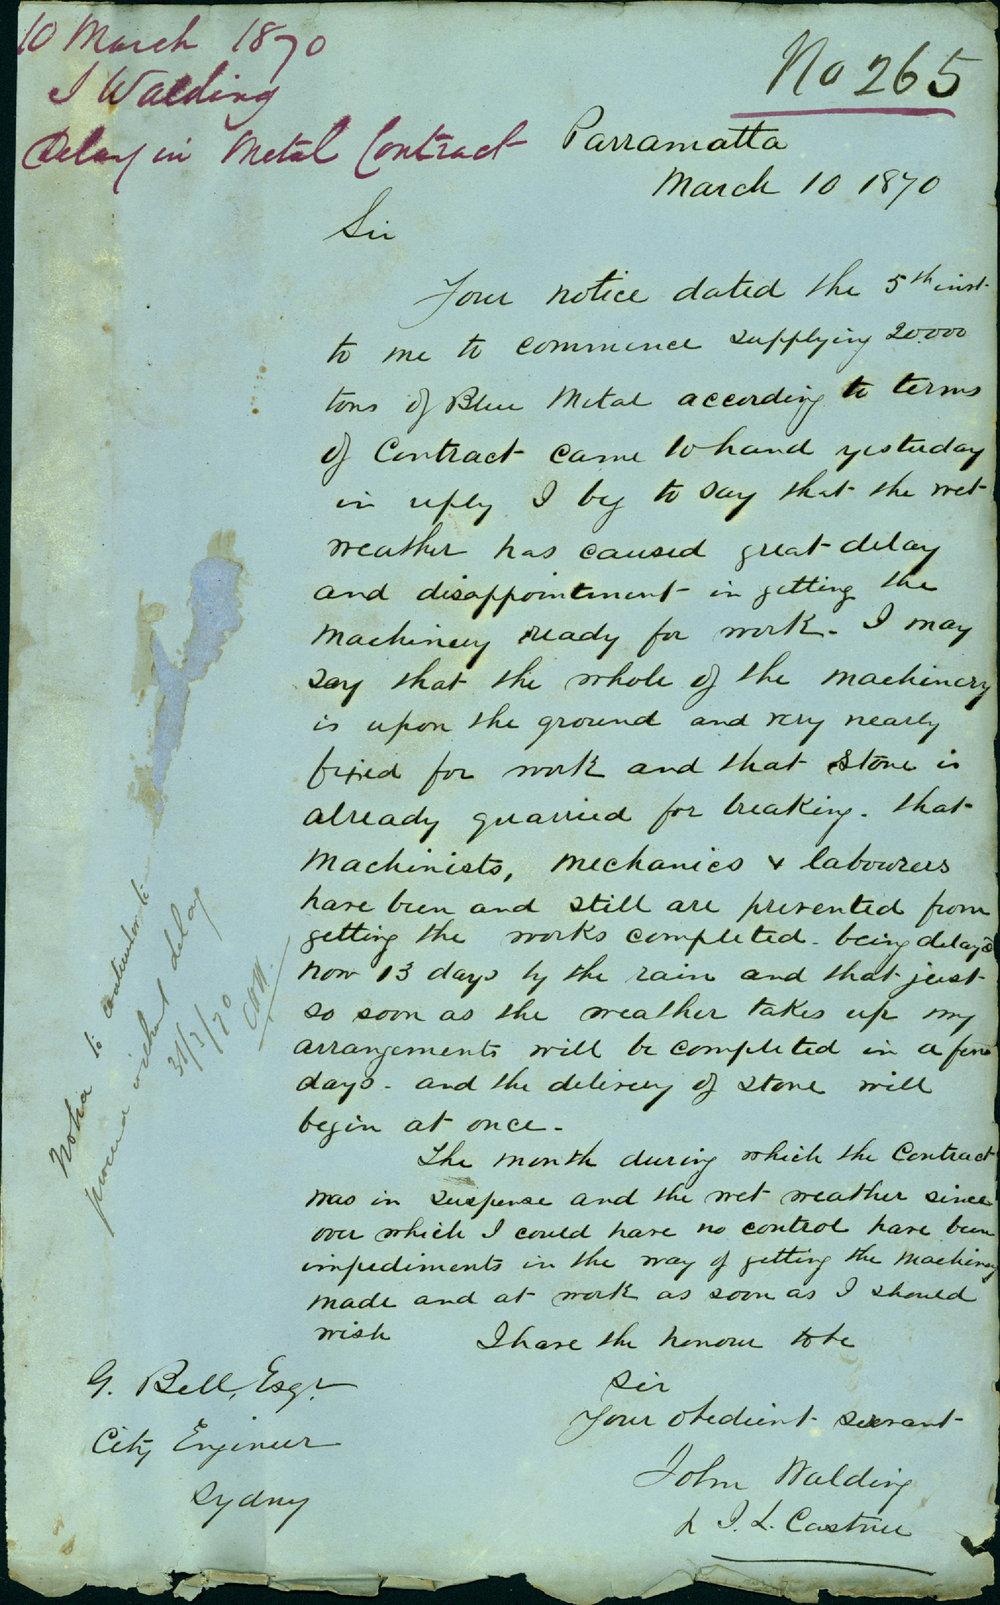 10 March 1870
J Walding
Delay in Metal Contract
No 265
Parramatta
March 10 1870
Sir
Your notice dated the 5th inst
to me to commence supplying 20.000
tons of Blue Metal according to terms
of Contract came to hand yesterday
in reply I beg to say that the wet
weather has caused great delay
and disappointment in getting the
Machinery ready for work. I may
say that the whole of the machinery
is upon the ground and very nearly
fixed for work and that Stone is
already quarried for breaking. that
Machinists, Mechanics & labourers
have been and still are prevented from
getting the works completed - being delay'd
now 13 days by the rain and that just
so soon as the weather takes up my
arrangements will be completed in a few
days - and the delivery of stone will
begin at once -
The month during which the Contract
was in suspense and the wet weather since
over which I could have no control have been
impediments in the way of getting the Machinery
made and at work as soon as I should
wish
I have the honour to be
Sir
Your obedient servant
John Walding
J. L. Castner
G. Bell, Esqr
City Engineer
Sydney
to contractor to
proceed without delay
31/3/70